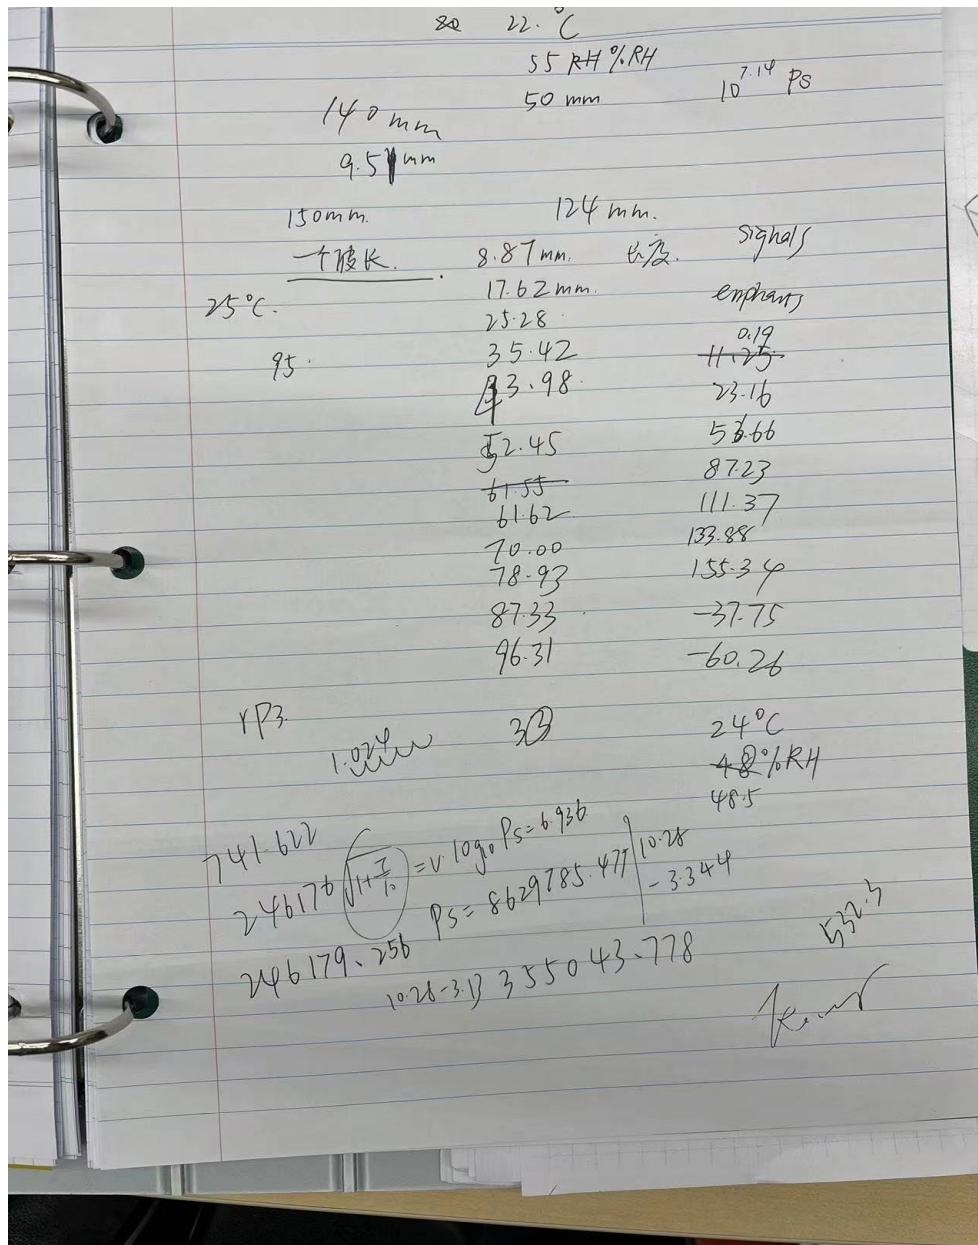 22.°C
55 %RH
50 mm 10^7.14 Ps
140 mm
9.5 mm
150mm. 124 mm.
一个波长. 8.87 mm. 长度. signals
25°C. 17.62 mm.
25.28
95. 35.42 0.19
11.25
43.98 23.16
52.45 53.66
61.55 87.23
61.62 111.37
70.00 133.88
78.93 155.34
87.33 -37.75
96.31 -60.26
rp3. 33 24°C
1.024 48%RH
48.5
741.622
246176 √1+I/I₀ = v. log₁₀ Ps = 6.936 10.28
Ps = 8629785.477 -3.344
246179.256
10.28-3.13 355043.778 532.3